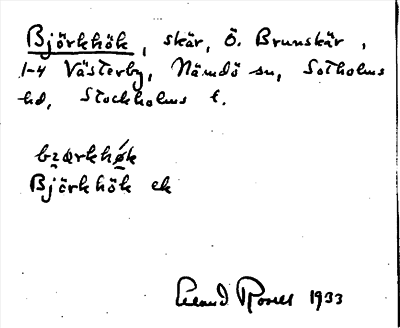 Björkhök, skär, Ö. Brunskär,
1-4 Västerby, Nämdö sn, Sotholms
hd, Stockholms l.
Björkhök ek
1933